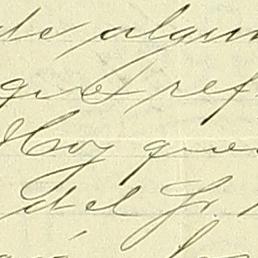 de algun
que ref
Hoy que
del Sr.